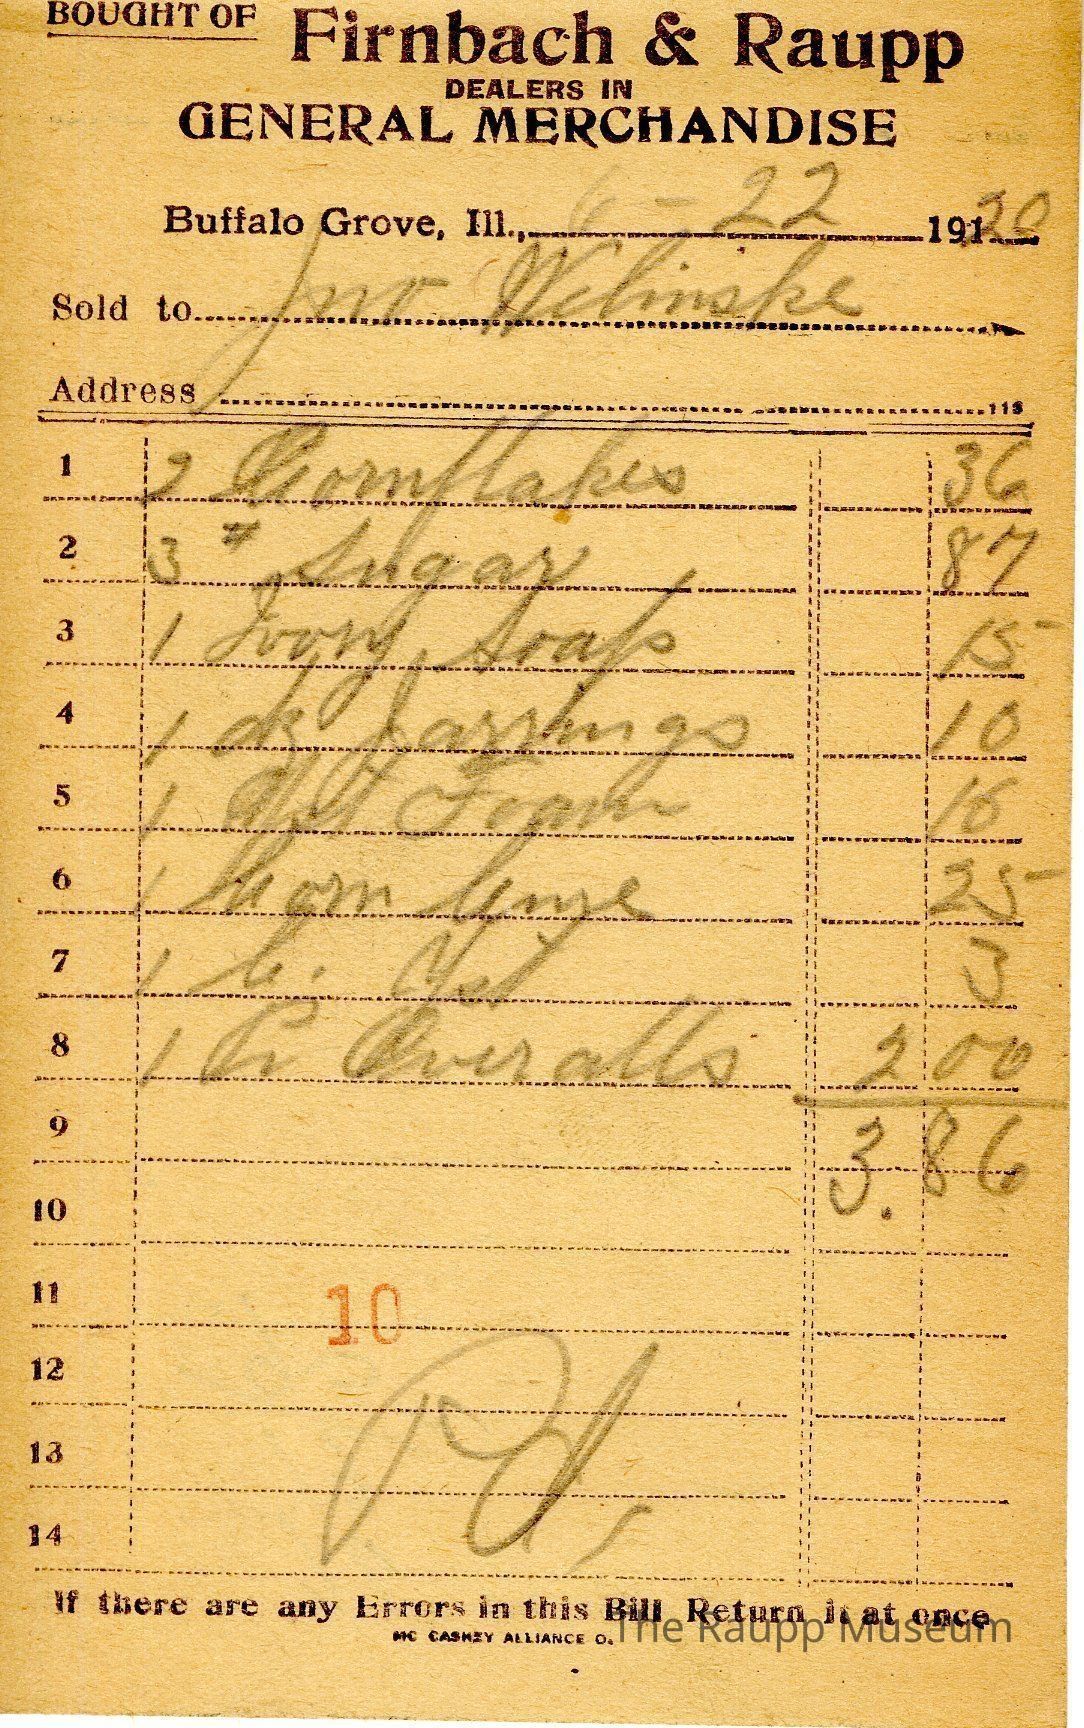 BOUGHT OF Firnbach & Raupp
DEALERS IN
GENERAL MERCHANDISE
Buffalo Grove, Ill., 6-22 191 20
Sold to Jno Welinske
Address 113
1 2 Cornflakes 36
2 3 # Sugar 87
3 1 Ivory Soap 15
4 1 dz Jarrings 10
5 1 Foam 10
6 1 25
7 1 C. Yst 3
8 1 Pr Overalls 2 00
9 3.86
10
11
10
12
Pd.
13
14
If there are any Errors in this Bill Return it at once
MC CASKEY ALLIANCE O.
The Raupp Museum